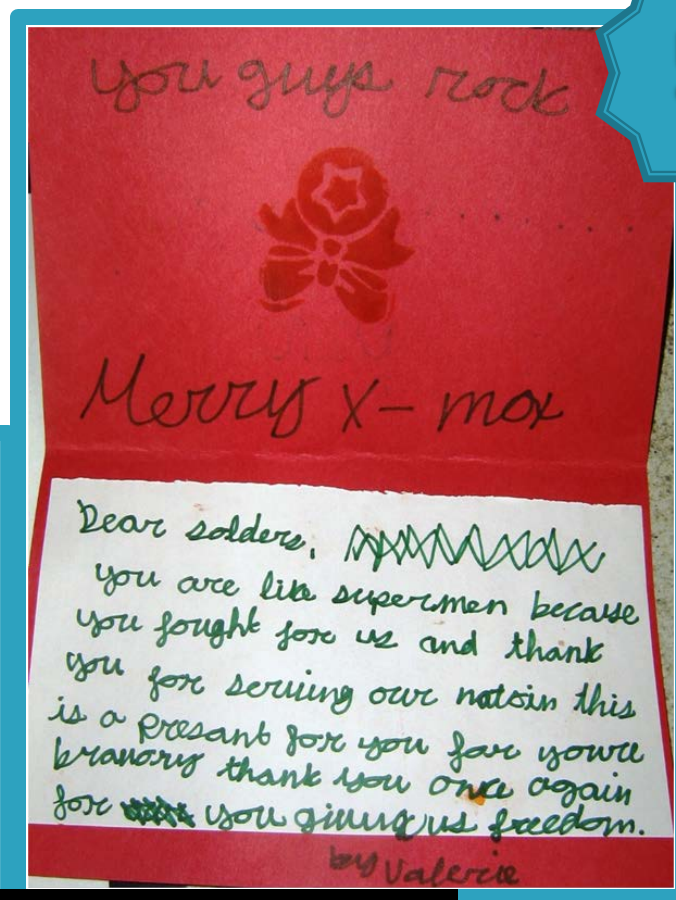 you guys rock
Merry X-mox
Dear solders,
you are like supermen because
you fought for us and thank
you for serving our natoin this
is a presant for you for youre
bravory thank you once again
for you giving us freedom.
by Valerie